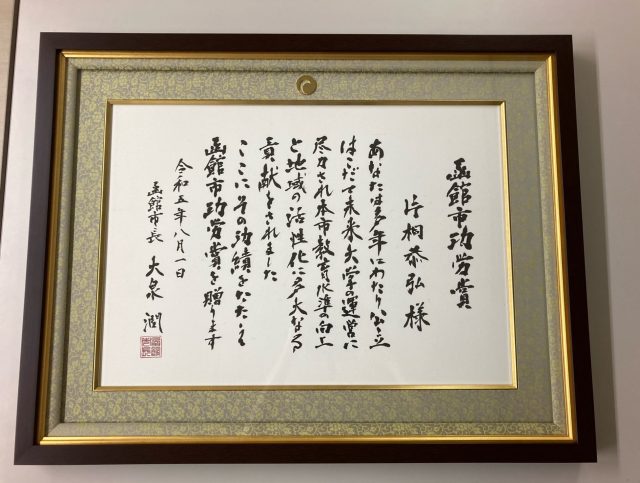 函館市功労賞
片桐恭弘様
あなたは多年にわたり公立
はこだて未来大学の運営に
尽力され本市教育水準の向上
と地域の活性化に多大なる
貢献をされました
ここにその功績をたたえ
函館市功労賞を贈ります
令和五年八月一日
函館市長 大泉潤